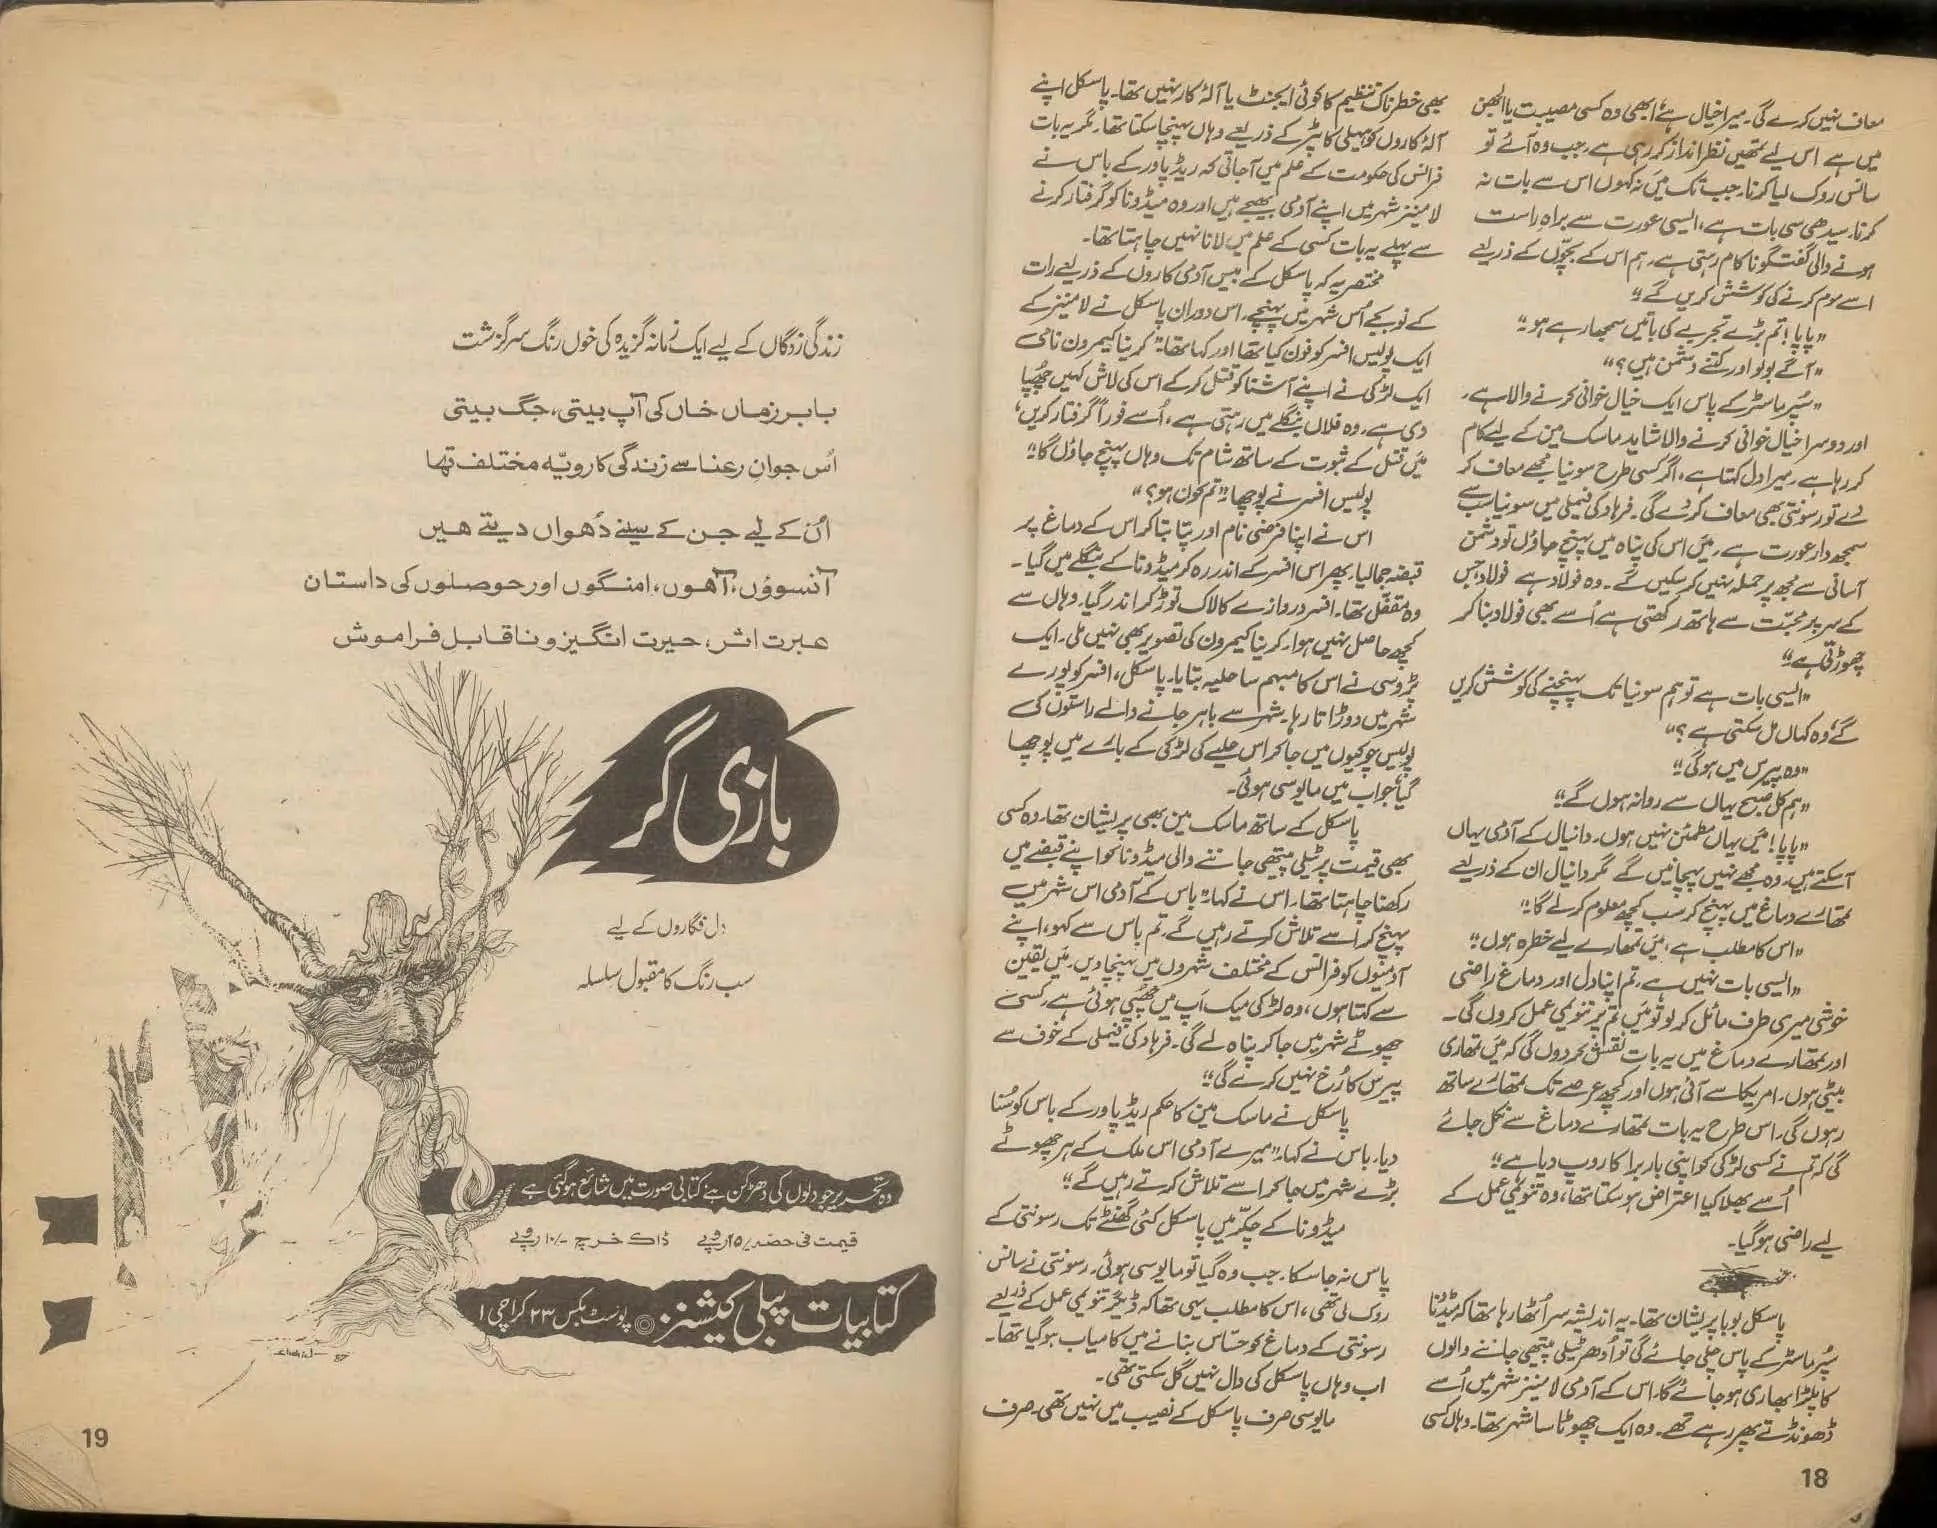 معاف نہیں کرے گی۔ میرا خیال ہے، ابھی وہ کسی مصیبت یا الجھن
میں ہے اس لیے تمھیں نظر انداز کر رہی ہے۔ جب وہ آئے تو
سانس روک لیا کرنا۔ جب تک میں نہ کہوں اس سے بات نہ
کرنا۔ سیدھی سی بات ہے، ایسی عورت سے براہِ راست
ہونے والی گفتگو ناکام رہتی ہے۔ ہم اس کے بچّوں کے ذریعے
اسے موم کرنے کی کوشش کریں گے۔"
"پاپا! تم بڑے تجربے کی باتیں سمجھا رہے ہو۔"
"آگے بولو اور کتنے دشمن ہیں؟"
"سُپر ماسٹر کے پاس ایک خیال خوانی کرنے والا ہے۔
اور دوسرا خیال خوانی کرنے والا شاید ماسک مین کے لیے کام
کر رہا ہے۔ میرا دل کہتا ہے، اگر کسی طرح سونیا مجھے معاف کر
دے تو رسونتی بھی معاف کر دے گی۔ فرہاد کی فیملی میں سونیا سب سے
سمجھ دار عورت ہے۔ میں اس کی پناہ میں پہنچ جاؤں تو دشمن
آسانی سے مجھ پر حملہ نہیں کر سکیں گے۔ وہ فولاد ہے فولاد، جس
کے سر پر محبّت سے ہاتھ رکھتی ہے اُسے بھی فولاد بنا کر
چھوڑتی ہے۔"
"ایسی بات ہے تو ہم سونیا تک پہنچنے کی کوشش کریں
گے، وہ کہاں مل سکتی ہے؟"
"وہ پیرس میں ہوگی۔"
"ہم کل صبح یہاں سے روانہ ہوں گے۔"
"پاپا! میں یہاں مطمئن نہیں ہوں۔ دانیال کے آدمی یہاں
آسکتے ہیں۔ وہ مجھے نہیں پہچانیں گے مگر دانیال ان کے ذریعے
تمھارے دماغ میں پہنچ کر سب کچھ معلوم کرلے گا۔"
"اس کا مطلب ہے، میں تمھارے لیے خطرہ ہوں۔"
"ایسی بات نہیں ہے۔ تم اپنا دل اور دماغ راضی
خوشی میری طرف مائل کر لو تو میں تم پر تنویمی عمل کروں گی۔
اور تمھارے دماغ میں یہ بات نقش کر دوں گی کہ میں تمھاری
بیٹی ہوں۔ امریکا سے آئی ہوں اور کچھ عرصے تک تمھارے ساتھ
رہوں گی۔ اس طرح یہ بات تمھارے دماغ سے نکل جائے
گی کہ تم نے کسی لڑکی کو اپنی باربرا کا روپ دیا ہے۔"
اُسے بھلا کیا اعتراض ہو سکتا تھا، وہ تنویمی عمل کے
لیے راضی ہوگیا۔
پاسکل بوبا پریشان تھا۔ یہ اندیشہ سر اُٹھا رہا تھا کہ میڈونا
سُپر ماسٹر کے پاس چلی جائے گی تو اُدھر ٹیلی پیتھی جاننے والوں
کا پلڑا بھاری ہو جائے گا۔ اس کے آدمی لامینز شہر میں اُسے
ڈھونڈتے پھر رہے تھے۔ وہ ایک چھوٹا سا شہر تھا۔ وہاں کسی
بھی خطرناک تنظیم کا کوئی ایجنٹ یا آلۂ کار نہیں تھا۔ پاسکل اپنے
آلۂ کاروں کو ہیلی کاپٹر کے ذریعے وہاں پہنچا سکتا تھا۔ مگر یہ بات
فرانس کی حکومت کے علم میں آجاتی کہ ریڈ پاور کے باس نے
لامینز شہر میں اپنے آدمی بھیجے ہیں اور وہ میڈونا کو گرفتار کرنے
سے پہلے یہ بات کسی کے علم میں لانا نہیں چاہتا تھا۔
مختصر یہ کہ پاسکل کے بیس آدمی کاروں کے ذریعے رات
کے نو بجے اُس شہر میں پہنچے۔ اس دوران پاسکل نے لامینز کے
ایک پولیس افسر کو فون کیا تھا اور کہا تھا۔ "کرینا کیمرون نامی
ایک لڑکی نے اپنے آشنا کو قتل کر کے اس کی لاش کہیں چھپا
دی ہے۔ وہ فلاں بنگلے میں رہتی ہے، اُسے فوراً گرفتار کریں،
میں قتل کے ثبوت کے ساتھ شام تک وہاں پہنچ جاؤں گا۔"
پولیس افسر نے پوچھا۔ "تم کون ہو؟"
اس نے اپنا فرضی نام اور پتا بتا کر اس کے دماغ پر
قبضہ جما لیا۔ پھر اس افسر کے اندر رہ کر میڈونا کے بنگلے میں گیا۔
وہ مقفّل تھا۔ افسر دروازے کا لاک توڑ کر اندر گیا۔ وہاں سے
کچھ حاصل نہیں ہوا۔ کرینا کیمرون کی تصویر بھی نہیں ملی۔ ایک
پڑوسی نے اس کا مبہم سا حلیہ بتایا۔ پاسکل، افسر کو پورے
شہر میں دوڑاتا رہا۔ شہر سے باہر جانے والے راستوں کی
پولیس چوکیوں میں جا کر اس حلیے کی لڑکی کے بارے میں پوچھا
گیا، جواب میں مایوسی ہوئی۔
پاسکل کے ساتھ ماسک مین بھی پریشان تھا۔ وہ کسی
بھی قیمت پر ٹیلی پیتھی جاننے والی میڈونا کو اپنے قبضے میں
رکھنا چاہتا تھا۔ اس نے کہا۔ "باس کے آدمی اس شہر میں
پہنچ کر اُسے تلاش کرتے رہیں گے۔ تم باس سے کہو، اپنے
آدمیوں کو فرانس کے مختلف شہروں میں پہنچا دیں۔ میں یقین
سے کہتا ہوں، وہ لڑکی میک اَپ میں چھپی ہوئی ہے۔ کسی
چھوٹے شہر میں جا کر پناہ لے گی۔ فرہاد کی فیملی کے خوف سے
پیرس کا رُخ نہیں کرے گی۔"
پاسکل نے ماسک مین کا حکم ریڈ پاور کے باس کو سُنا
دیا۔ باس نے کہا۔ "میرے آدمی اس ملک کے ہر چھوٹے
بڑے شہر میں جا کر اسے تلاش کرتے رہیں گے۔"
میڈونا کے چکّر میں پاسکل کئی گھنٹے تک رسونتی کے
پاس نہ جا سکا۔ جب وہ گیا تو مایوسی ہوئی۔ رسونتی نے سانس
روک لی تھی، اس کا مطلب یہی تھا کہ ڈیگر تنویمی عمل کے ذریعے
رسونتی کے دماغ کو حسّاس بنانے میں کامیاب ہوگیا تھا۔
اب وہاں پاسکل کی دال نہیں گل سکتی تھی۔
مایوسی صرف پاسکل کے نصیب میں نہیں تھی۔ صرف
18
زندگی زدگاں کے لیے ایک زمانہ گزیدہ کی خوں رنگ سرگزشت
بابر زماں خاں کی آپ بیتی، جگ بیتی
اُس جوانِ رعنا سے زندگی کا رویّہ مختلف تھا
اُن کے لیے جن کے سینے دُھواں دیتے ہیں
آنسوؤں، آہوں، امنگوں اور حوصلوں کی داستان
عبرت اثر، حیرت انگیز و ناقابل فراموش
بازی گر
دل فگاروں کے لیے
سب رنگ کا مقبول سلسلہ
وہ تحریر جو دلوں کی دھڑکن ہے کتابی صورت میں شائع ہوگئی ہے
قیمت فی حصہ ۲۵/ روپے ڈاک خرچ ۱۰/- روپے
کتابیات پبلی کیشنز پوسٹ بکس ۲۳ کراچی ۱
19